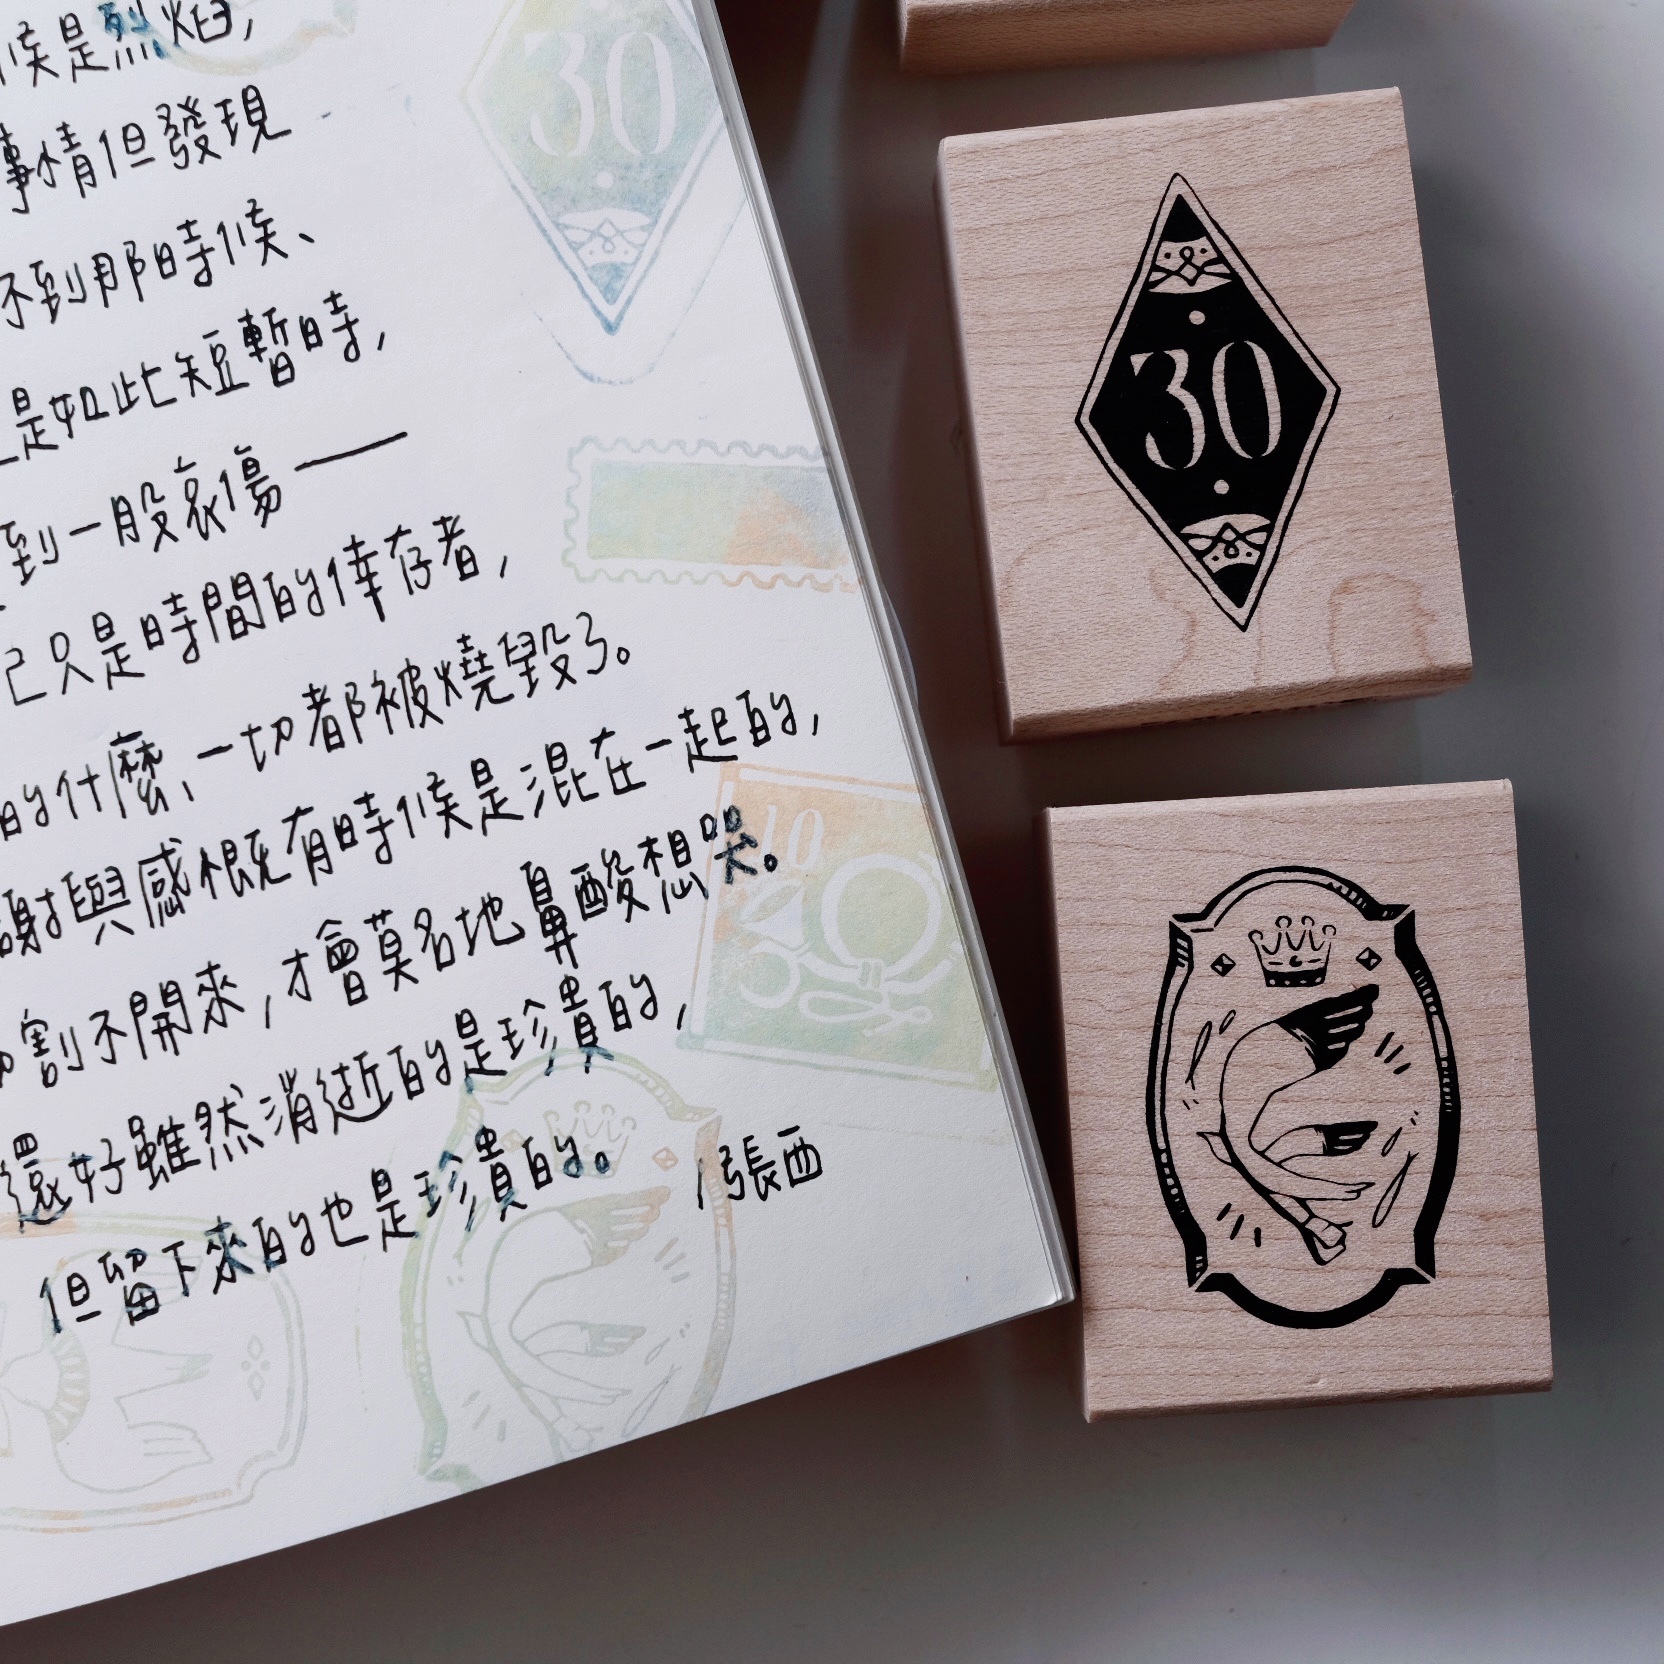 候是烈焰，
事情但發現
不到那時候、
是如此短暫時，
到一股哀傷——
己只是時間的倖存者，
的什麼、一切都被燒毀了。
謝與感慨有時候是混在一起的，
割不開來，才會莫名地鼻酸想哭。
還好雖然消逝的是珍貴的，
但留下來的也是珍貴的。 /張西
30
10
30